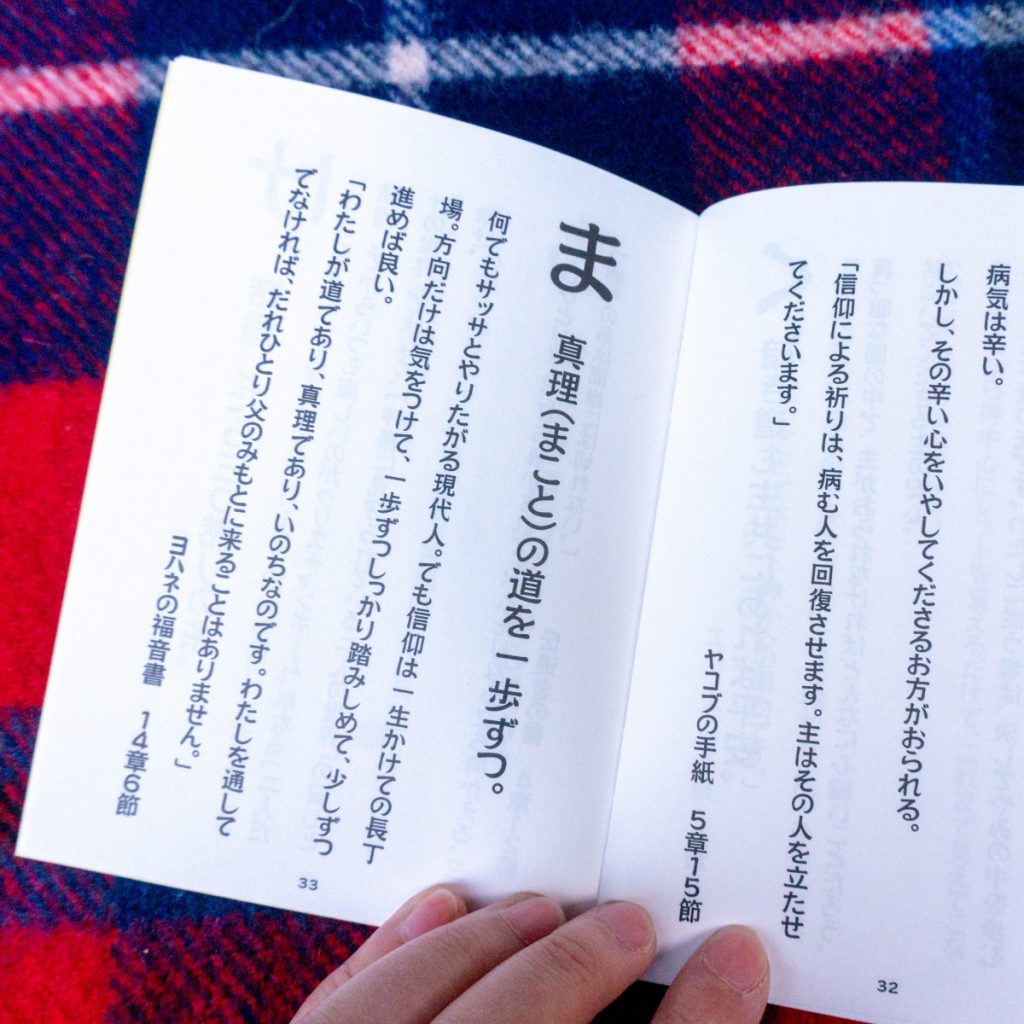 病気は辛い。
しかし、その辛い心をいやしてくださるお方がおられる。
「信仰による祈りは、病む人を回復させます。主はその人を立たせ
てくださいます。」
ヤコブの手紙　5章15節
32
ま　真理(まこと)の道を一歩ずつ。
何でもサッサとやりたがる現代人。でも信仰は一生かけての長丁
場。方向だけは気をつけて、一歩ずつしっかり踏みしめて、少しずつ
進めば良い。
「わたしが道であり、真理であり、いのちなのです。わたしを通して
でなければ、だれひとり父のみもとに来ることはありません。」
ヨハネの福音書　14章6節
33